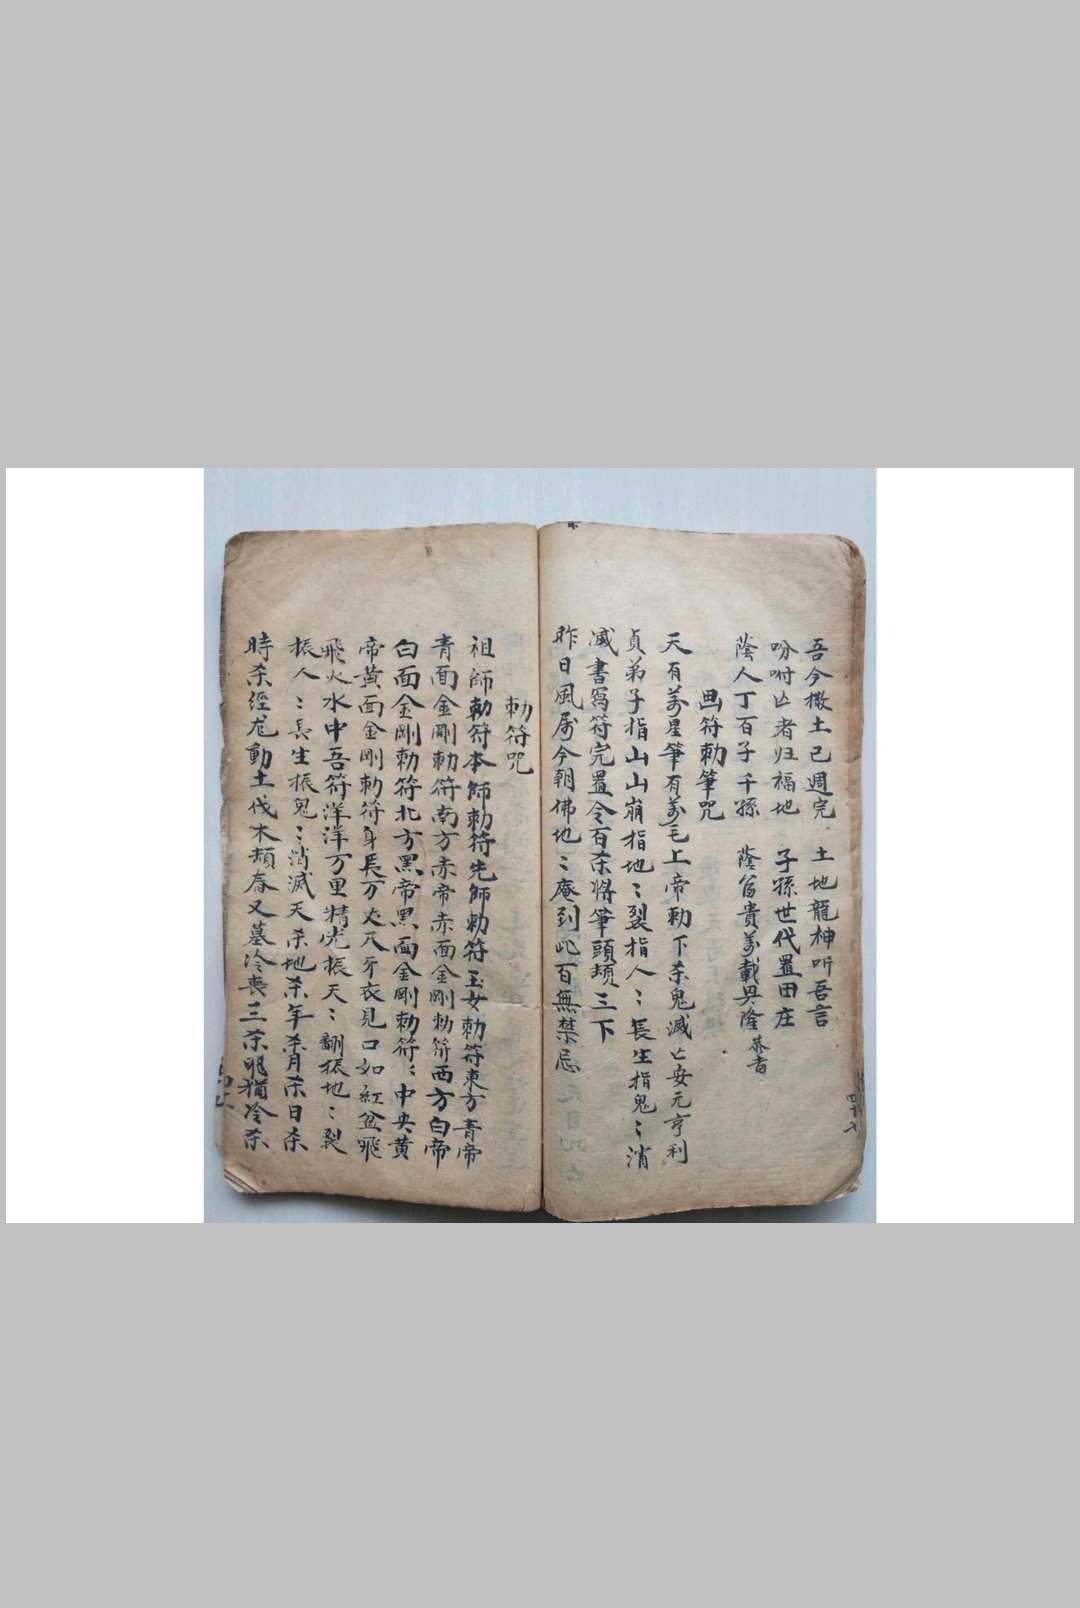 吾今撒土已週完 土地龍神听吾言
吩咐凶者归福地 子孫世代置田庄
蔭人丁百子千孫 蔭富貴萬載興隆
画符勅筆咒
天有萬星筆有萬毛上帝勅下杀鬼滅亡安元亨利
貞弟子指山山崩指地〻裂指人〻長生指鬼〻消
滅書寫符完置令百杀將筆頭頡三下
昨日風房今朝佛地〻庵到此百無禁忌
勅符咒
祖師勅符本師勅符先師勅符玉女勅符東方青帝
青面金剛勅符南方赤帝赤面金剛勅符西方白帝
白面金剛勅符北方黑帝黑面金剛勅符〻中央黄
帝黄面金剛勅符身長万丈尺牙衣見口如紅盆飛
飛火水中吾符洋洋万里精光振天〻翻振地〻裂
振人〻長生振鬼〻消滅天杀地杀年杀月杀日杀
時杀經尨動土伐木頡春又墓冷喪三杀猫冷杀